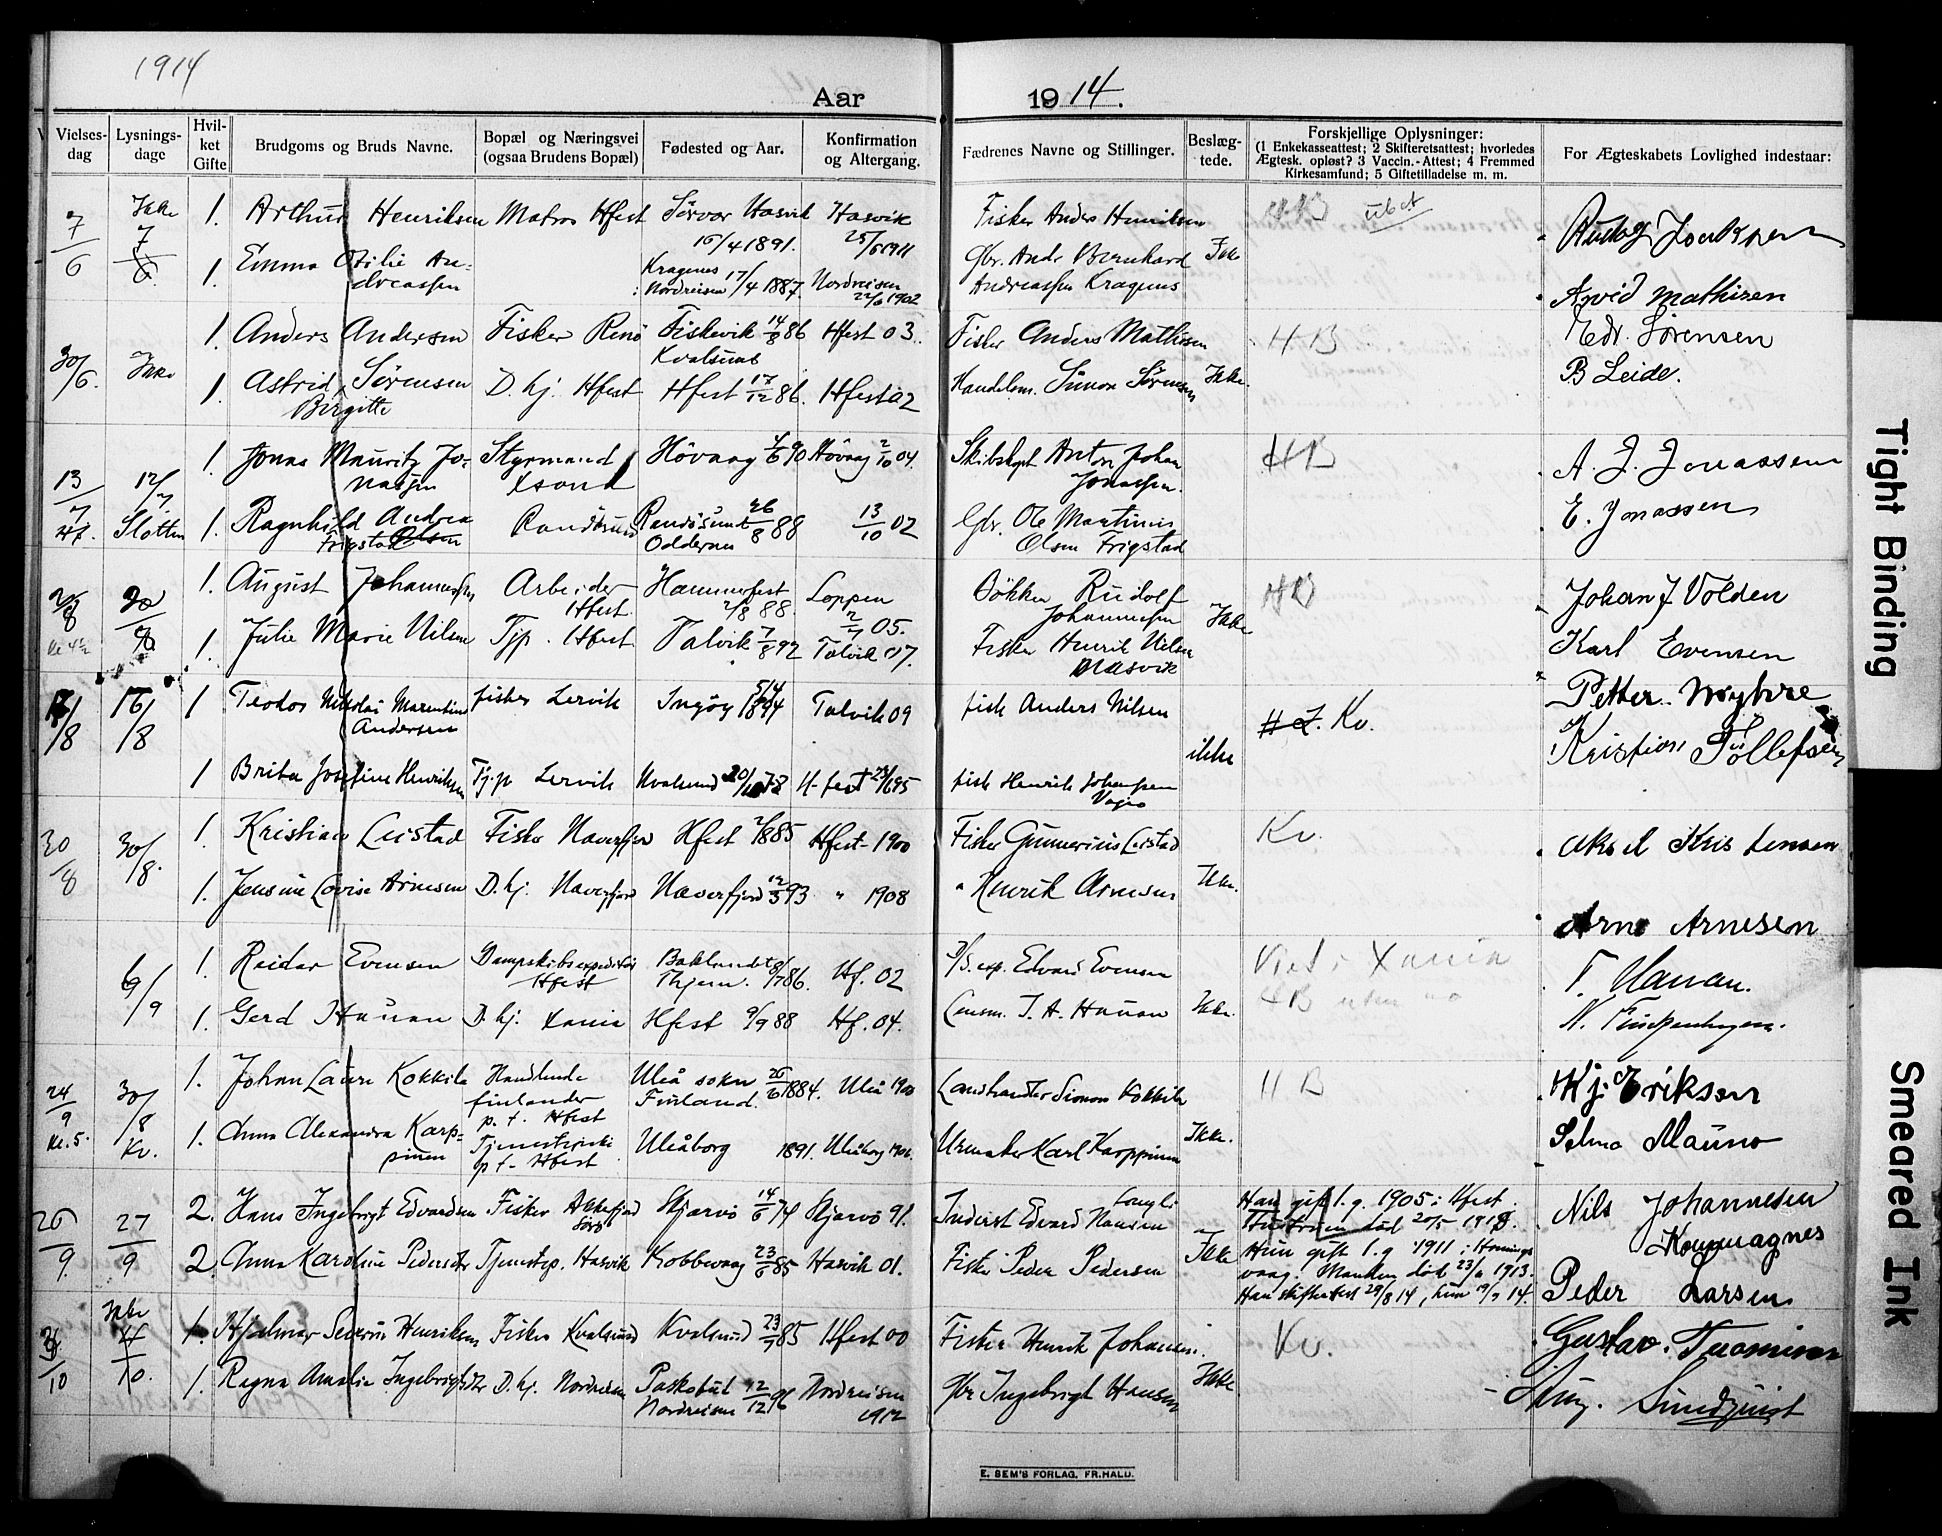 1914
Aar 1914.
Vielses-dag
Lysnings-dage
Hvil-ket Gifte
Brudgoms og Bruds Navne.
Bopæl og Næringsvei (ogsaa Brudens Bopæl)
Fødested og Aar.
Konfirmation og Altergang.
Fædrenes Navne og Stillinger.
Beslæg-tede.
Forskjellige Oplysninger:
(1 Enkekasseattest; 2 Skifteretsattest; hvorledes
Ægtesk. opløst? 3 Vaccin.-Attest; 4 Fremmed
Kirkesamfund; 5 Giftetilladelse m. m.
For Ægteskabets Lovlighed indestaar:
7/6 Ikke 7/6 1. Arthur Henriksen Matros Hfest Sørvær Hasvik Hasvik Fisker Anders Henriksen HB
16/4 1891. 25/6 1911
1. Emma Otilie An- Kragenes 17/4 1887. Nordreisen Gbr. Andr Bernhard Ikke
dreassen Nordreisen 1902 Andreassen Kragenes Arvid Mathisen
30/6. Ikke 1. Anders Andersen Fisker Fiskevik 14/8 86 Hfest 03. Fisker Anders Mathisen HB Edr. Sørensen
Kvalsund
1. Astrid Sørensen D. hj. Hfest Hfest 17/12 86. Hfest 02 Handelsm. Simon Sørensen Ikke B Leide.
Birgitte
13/7 12/7 1. Jonas Mauritz Jo- Styrmand Høvaag 4/6 90 Høvaag 2/10 04. Skibskapt Anton Johan HB A. J. Jonassen
nassen Xsand Jonassen.
Slotten 1. Ragnhild Andrea Randøsund Randøsund 26/8 88 13/10 02 Gbr. Ole Martinius E. Jonassen
Frigstad Olsen Oddernes Olsen Frigstad
1. August Johannessen Arbeider Hammerfest Loppen Bøkker Rudolf HB Johan J Volden
Hfest. 2/8 88 2/7 05. Johannessen Ikke
1. Julie Marie Nilsen Tjp. Hfest Talvik 7/8 92 Talvik 07. Fisker Henrik Nilsen Karl Evensen
16/8 1 Teodor Nikolai Marentius fisker Lervik Ingøy Talvik 09 fisk Anders Nilsen Kv. Petter Myhre
Andersen ikke Kristian Tollefsen
1 Brita Josefine Henriksen Tj.p Lervik Kvalsund H-fest fisk Henrik Johansen
30/8 30/8. 1. Kristian Leistad Fisker Naverfjord Hfest 2/8 85 Hfest 1900 Fisker Gunnerius Leistad Kv. Aksel Kristensen
1. Jensine Lovise Arnesen D. hj. Naverfjord Naverfjord 12/3 93 " 1908 " Henrik Arnesen Ikke. Arne Arnesen
6/9 1. Reidar Evensen Dampskibsexpeditør Baklandet Hf. 02 D/S. exp. Edvard Evensen Viet i Xania T. Hauan.
Hfest Thjem. 86.
1. Gerd Hauan D. hj. Xania Hfest 9/9 88 Hf. 04. Lensm. J. A. Hauan Ikke. HB
24/9 30/8 1. Johan Lauri Kokkila Handlende Uleå sokn 26/6 1884. Uleå 1900 Landhandler Simon Kokkila HB Hj. Eriksen
finlænder Finland.
p. t. Hfest
Kl. 5. Kv. 1. Anna Alexandra Karp- Tjenestepike Uleåborg 1891. Uleåborg 1906. Urmaker Karl Karppinen Ikke. Selma Mauno
pinen p t. Hfest
26/9 27/9 2. Hans Ingebrigt Edvardsen Fisker Akkefjord Skjervø 14/6 74 Skjervø 91. Inderst Edvard Hansen Han gift 1. g. 1905 i Hfest. Nils Johannesen
Sørø Hustruen død 20/5 1913. Komagnes
2. Anna Karoline Pedersdtr Tjenestep. Hasvik Kobbevaag 23/6 85 Hasvik 01. Fisker Peder Pedersen Ikke Hun gift 1. g 1911 i Honnings
vaag. Manden død 1913.
Han skifteattest 29/8 14, hun 14. Peder Larsen
Ikke
10 10. 1. Hjalmar Severin Henriksen Fisker Kvalsund Kvalsund 23/7 85 Hfest 00 Fisker Henrik Johansen. Kv. Gustav Tuominen
1. Ragna Amalie Ingebrigtsdtr D. hj. Nordreisen Paskobut 12/12 96 Nordreisen Gbr Ingebrigt Hansen Ikke Sundquist
Nordreisen 1912
E. SEM'S FORLAG, FR.HALD.
Tight Binding
Smeared Ink